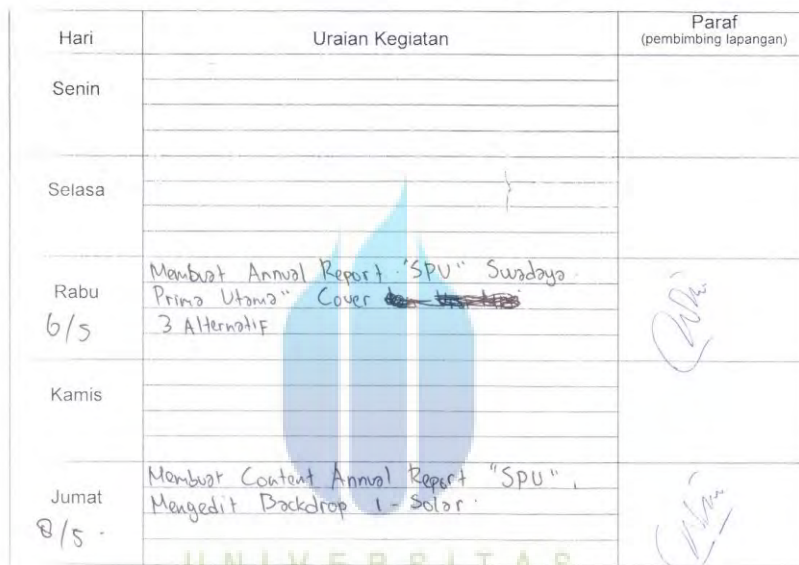 Hari Uraian Kegiatan Paraf
(pembimbing lapangan)
Senin
Selasa
Rabu
6/5
Membuat Annual Report "SPU" Swadaya
Prima Utama" Cover
3 Alternatif
Kamis
Jumat
8/5.
Membuat Content Annual Report "SPU",
Mengedit Backdrop 1 - Solar.
UNIVERSITAS